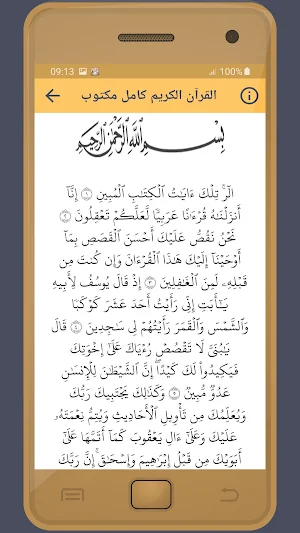 09:13 100%
القرآن الكريم كامل مكتوب
بِسْمِ ٱللَّهِ ٱلرَّحْمَٰنِ ٱلرَّحِيمِ
الٓرۚ تِلْكَ ءَايَٰتُ ٱلْكِتَٰبِ ٱلْمُبِينِ ١ إِنَّآ
أَنزَلْنَٰهُ قُرْءَٰنًا عَرَبِيًّا لَّعَلَّكُمْ تَعْقِلُونَ ٢
نَحْنُ نَقُصُّ عَلَيْكَ أَحْسَنَ ٱلْقَصَصِ بِمَآ
أَوْحَيْنَآ إِلَيْكَ هَٰذَا ٱلْقُرْءَانَ وَإِن كُنتَ مِن
قَبْلِهِۦ لَمِنَ ٱلْغَٰفِلِينَ ٣ إِذْ قَالَ يُوسُفُ لِأَبِيهِ
يَٰٓأَبَتِ إِنِّي رَأَيْتُ أَحَدَ عَشَرَ كَوْكَبًا
وَٱلشَّمْسَ وَٱلْقَمَرَ رَأَيْتُهُمْ لِي سَٰجِدِينَ ٤ قَالَ
يَٰبُنَيَّ لَا تَقْصُصْ رُءْيَاكَ عَلَىٰٓ إِخْوَتِكَ
فَيَكِيدُوا۟ لَكَ كَيْدًاۖ إِنَّ ٱلشَّيْطَٰنَ لِلْإِنسَٰنِ
عَدُوٌّ مُّبِينٌ ٥ وَكَذَٰلِكَ يَجْتَبِيكَ رَبُّكَ
وَيُعَلِّمُكَ مِن تَأْوِيلِ ٱلْأَحَادِيثِ وَيُتِمُّ نِعْمَتَهُۥ
عَلَيْكَ وَعَلَىٰٓ ءَالِ يَعْقُوبَ كَمَآ أَتَمَّهَا عَلَىٰٓ
أَبَوَيْكَ مِن قَبْلُ إِبْرَٰهِيمَ وَإِسْحَٰقَۚ إِنَّ رَبَّكَ